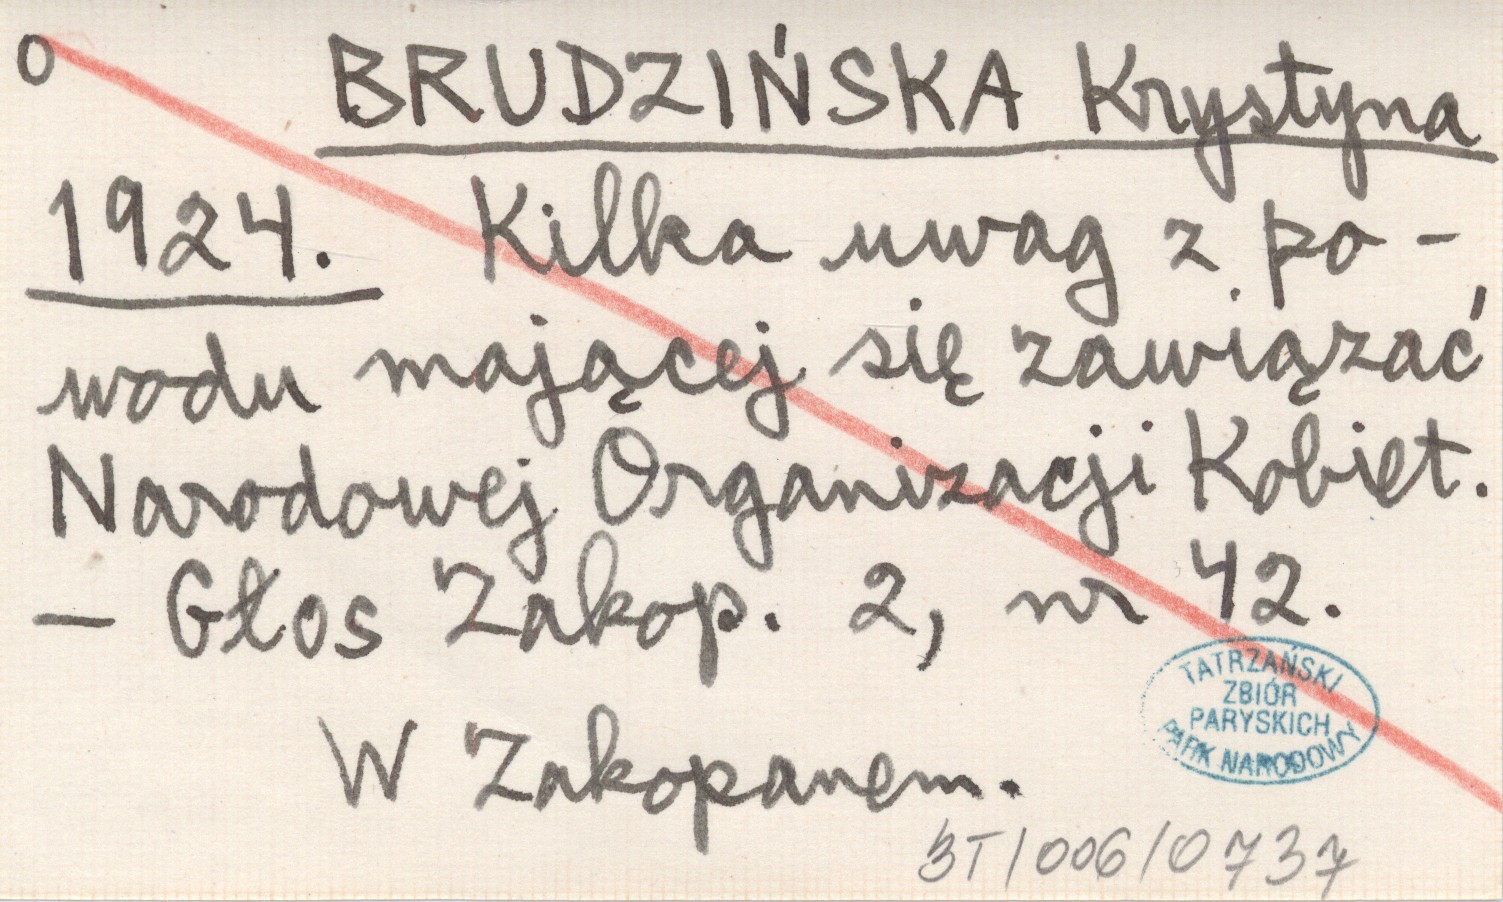 o BRUDZIŃSKA Krystyna
1924. Kilka uwag z po-
wodu mającej się zawiązać
Narodowej Organizacji Kobiet.
— Głos Zakop. 2, nr 42.
W Zakopanem.
TATRZAŃSKI
ZBIÓR
PARYSKICH
PARK NARODOWY
BT/006/0737